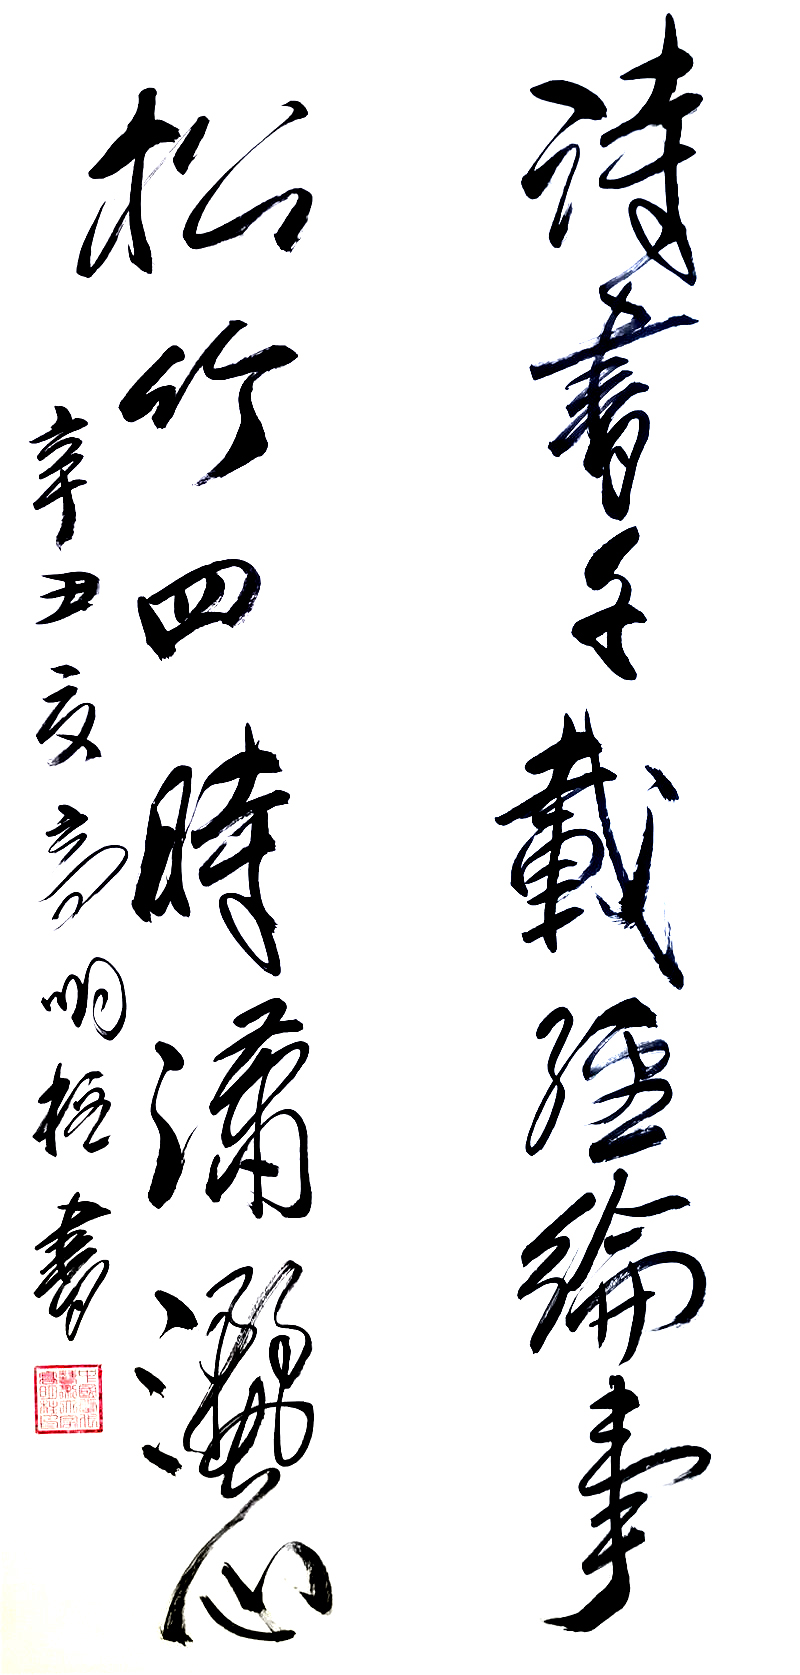 詩書千載經綸事
松竹四時瀟灑心
辛丑亥高明柱書